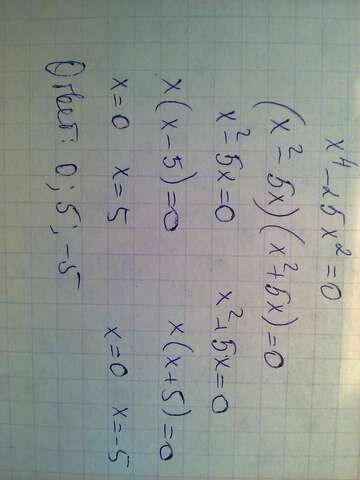 x⁴-25x²=0
(x²-5x)(x²+5x)=0
x²-5x=0 x²+5x=0
x(x-5)=0 x(x+5)=0
x=0 x=5 x=0 x=-5
Ответ: 0; 5; -5